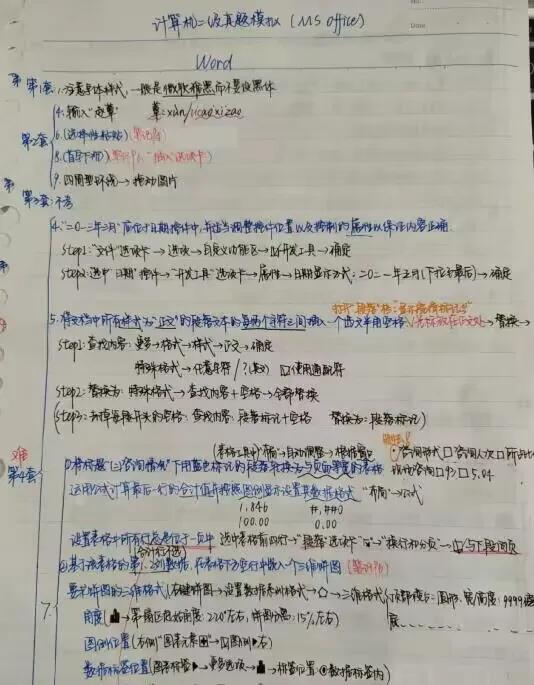 计算机二级真题模拟 (MS office)
Word
第1套 1.注意具体样式,一般是微软雅黑而不是设黑体
4.输入"
第2套 6.(选择性粘贴)
8.(首字下沉)"插入"选项卡)
9.四周型环绕→拖动图片
第3套:不考
4."二〇一二年三月"后位于日期控件中,并适当调整控件位置以及控制的属性以保证内容正确.
Step1:"文件"选项卡→选项→自定义功能区→☑开发工具→确定
Step2:选中"日期"控件→"开发工具"选项卡→属性→日期显示方式:二〇二一年三月(下拉到最后)→确定
5.将文档中所有样式为"正文"的段落文本的每两个字符之间插入一个西文半角空格(光标放在正文处)→替换→
Step1:查找内容:更多→格式→样式→正文→确定
特殊格式→任意字符/?(英文) ☑使用通配符
Step2:替换为:特殊格式→查找内容+空格→全部替换
(Step3:去掉段落开头的空格:查找内容:段落标记+空格 替换为:段落标记)
难
第4套
(表格工具中)"布局"→自动调整→根据窗口
①将标题"(二)咨询情况"下用蓝色标记的段落转换为与页面等宽的表格
咨询形式□咨询人次□所占
现场咨询□9□5.04
运用公式计算最后一行的合计值并按照图例显示设置其数据格式 "布局"→公式
1,846 #,##0
100.00 0.00
设置表格中所有行总是位于一页中 选中表格前四行→"段落"选项卡"↘"→"换行和分页"→☑与下段同页
(合计行不选)
7.
②基于该表格的第1、2列数据,在表格下方空行中嵌入一个三维饼图
要求饼图的三维格式(右键饼图→设置数据系列格式→⬠→三维格式(顶部棱台:圆形.宽/高度:9999磅
角度(→第一扇区起始角度:220°左右,饼图分离:15%左右)
图例位置(右侧"图表元素⊞"→☑图例▶右)
数据标签位置(图表标签▶→更多选项→→标签位置:◉数据标签内)